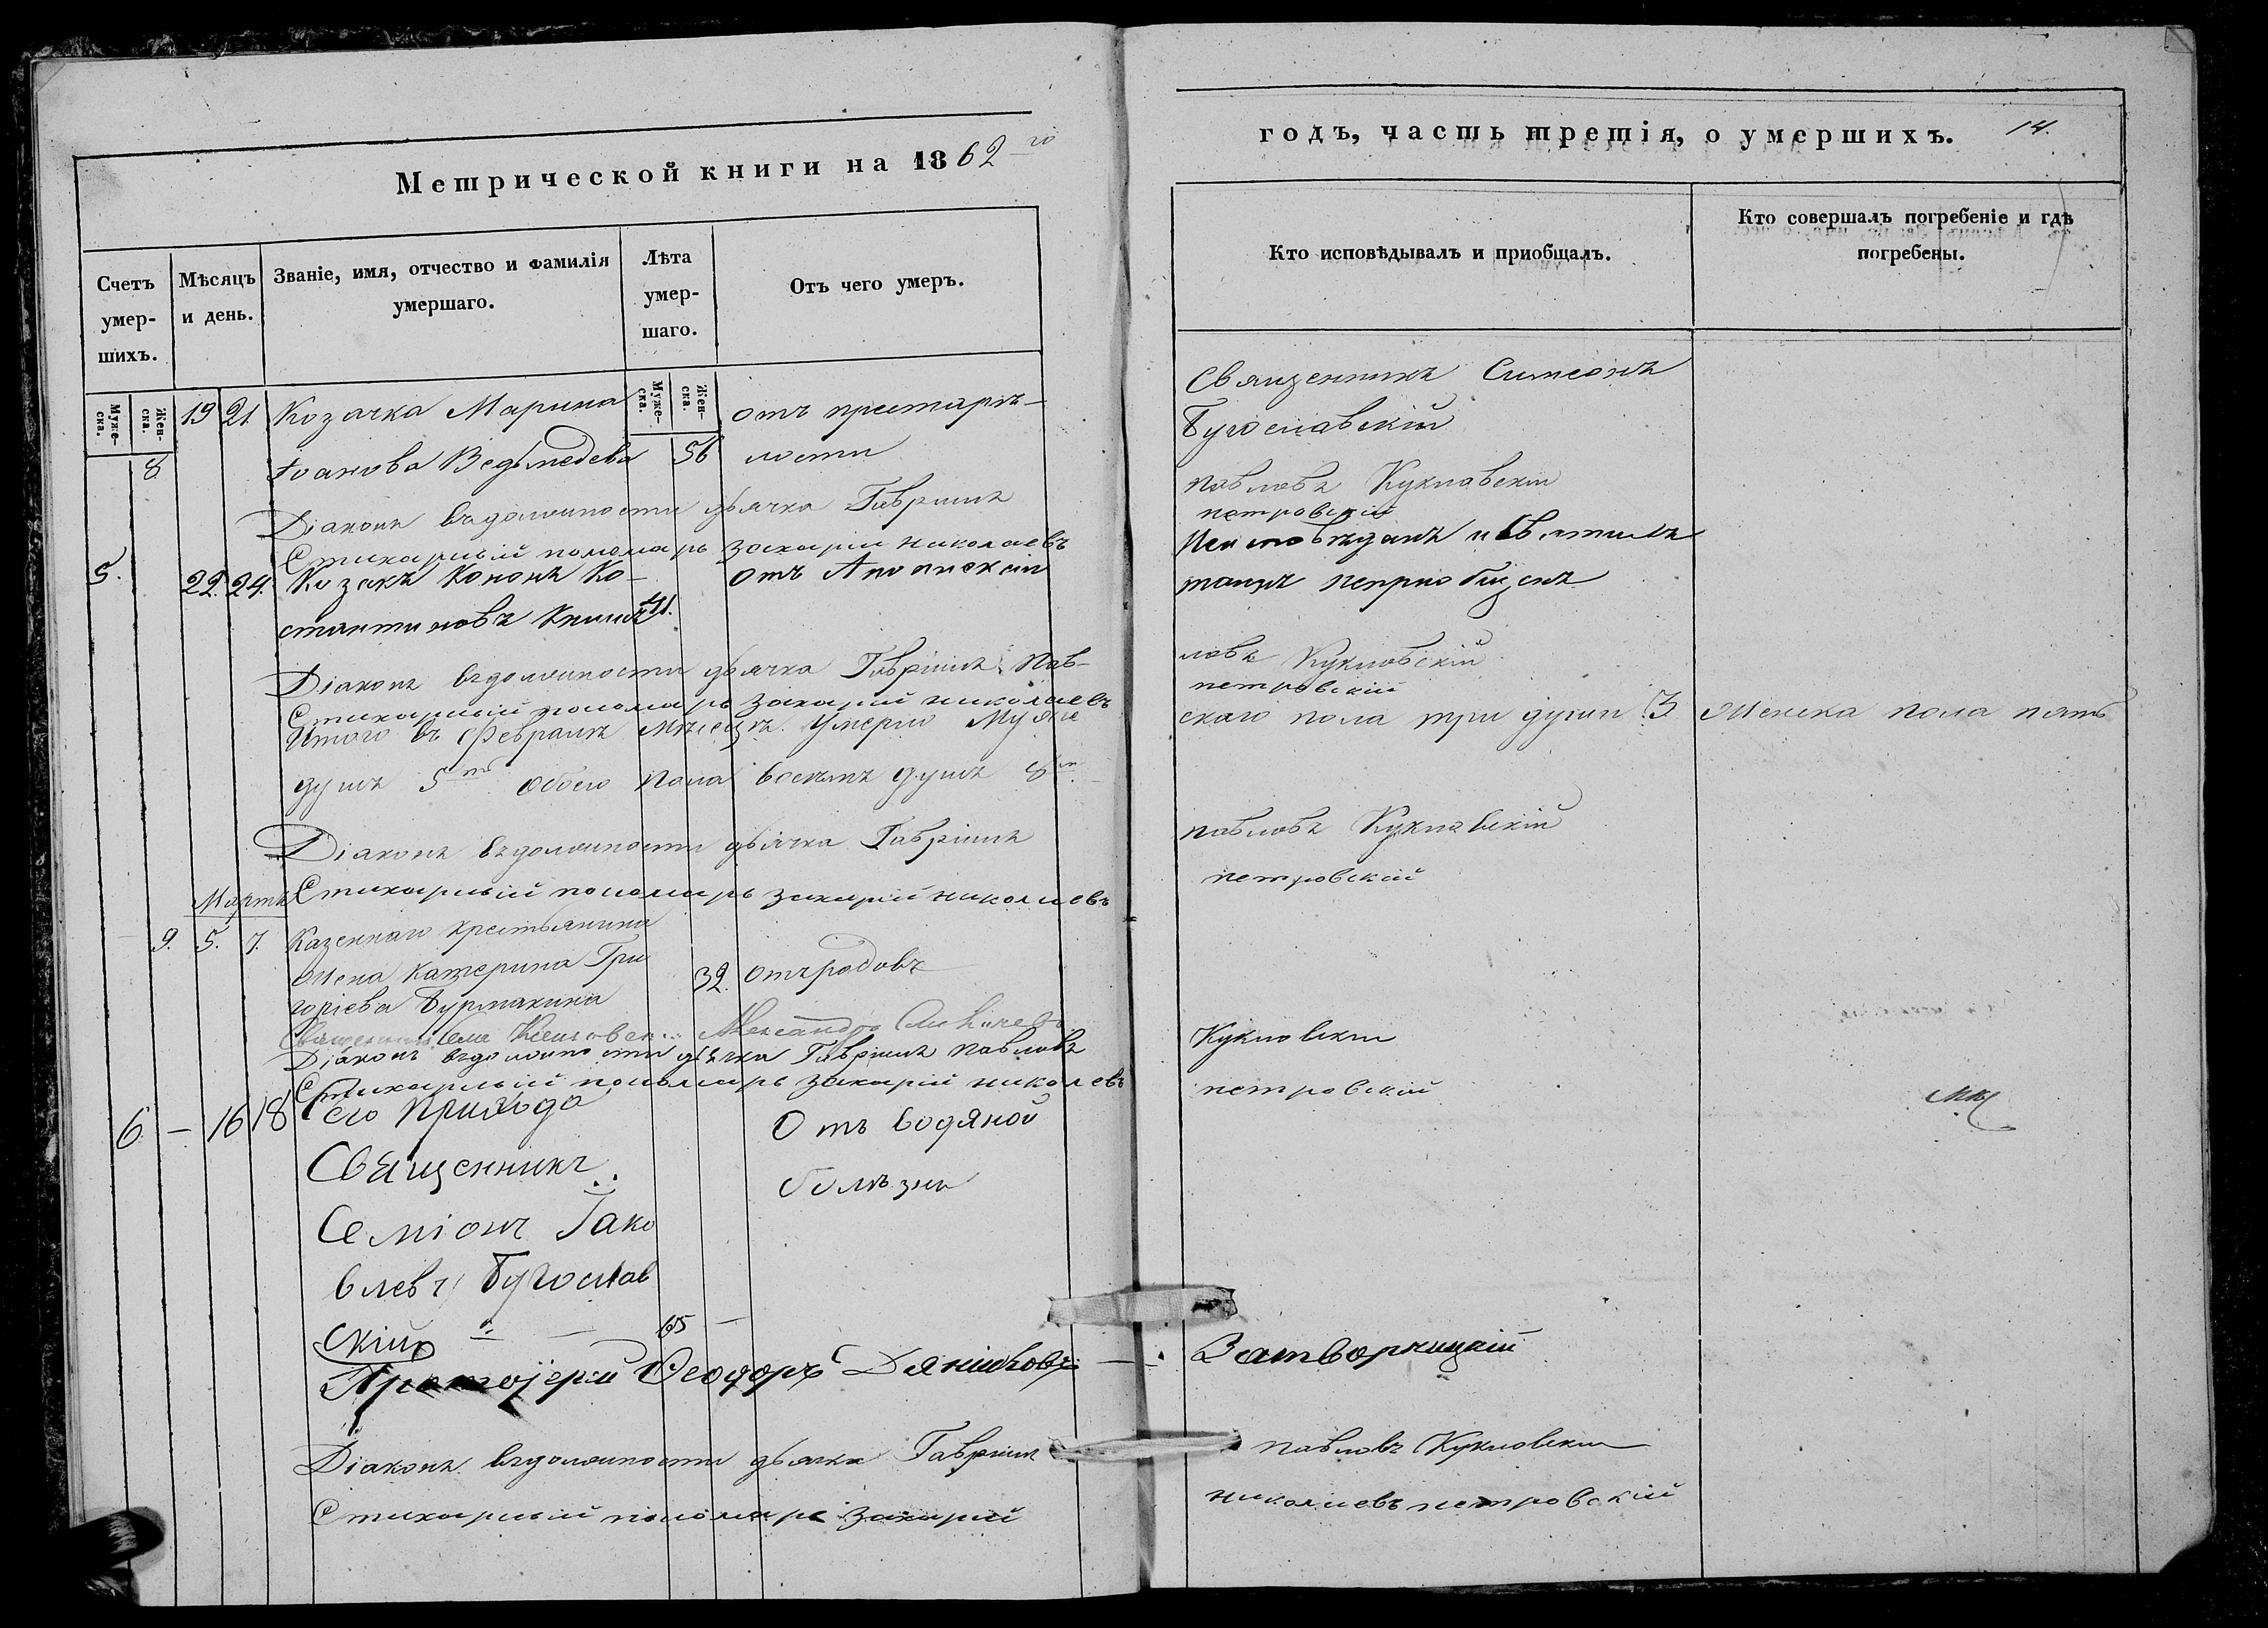 Метрической книги на 1862 го
годъ, часть третія, о умершихъ. 14.
Счетъ умер-шихъ.
Мѣсяцъ и день.
Званіе, имя, отчество и фамилія умершаго.
Лѣта умер-шаго.
Отъ чего умеръ.
Кто исповѣдывалъ и приобщалъ.
Кто совершалъ погребеніе и гдѣ погребены.
Муже-ска. Жен-ска.
Муже-ска. Жен-ска.
19 21. Козачка Марина отъ престарѣ- Священникъ Симеонъ
8. Іоанова Ведьмедева 56 лости Бугославскій
Діаконъ въ должности дьячка Гавріилъ Павловъ Кукловскій
Стихарный пономарь Захарій Николаевъ Петровскій
5. 22. 24. Козакъ Кононъ Ко- отъ Апоплексіи Неисповѣданъ и Св. тайнъ
стантиновъ 41. непріобщенъ
Діаконъ въ должности дьячка Гавріилъ Пав- ловъ Кукловскій
Стихарный пономарь Захарій Николаевъ Петровскій
Итого въ Февралѣ мѣсецѣ умерло Муже скаго пола три души 3. Женска пола пять
душъ 5 ть обоего пола восемъ душъ 8 м.
Діаконъ въ должности дьячка Гавріилъ Павловъ Кукловскій
Стихарный пономарь Захарій Николаевъ Петровскій
Мартъ
9. 5. 7. Казеннаго крестьянина
жена Катерина Гри 32. отъ родовъ
горіева Бурмакина
Священникъ села Александръ
Діаконъ въ должности дьячка Гавріилъ Павловъ Кукловскій
Стихарный пономарь Захарій Николаевъ Петровскій
6. — 16 18 сего прихода Отъ водяной
Священникъ болѣзни
Семіонъ Іако
влевъ Бугослав
скій 65 —
Протоіерей Ѳеодоръ Затворницкій
Діаконъ въ должности дьячка Гавріилъ Павловъ Кукловскій
Стихарный пономарь Захарій Николаевъ Петровскій